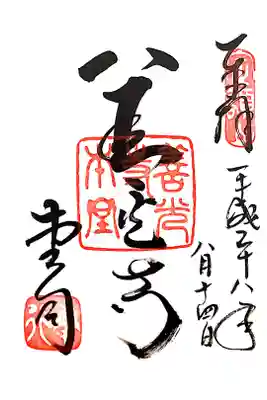 奉拝
平成二十八年
八月十四日
善光寺
善光寺本堂
堂司